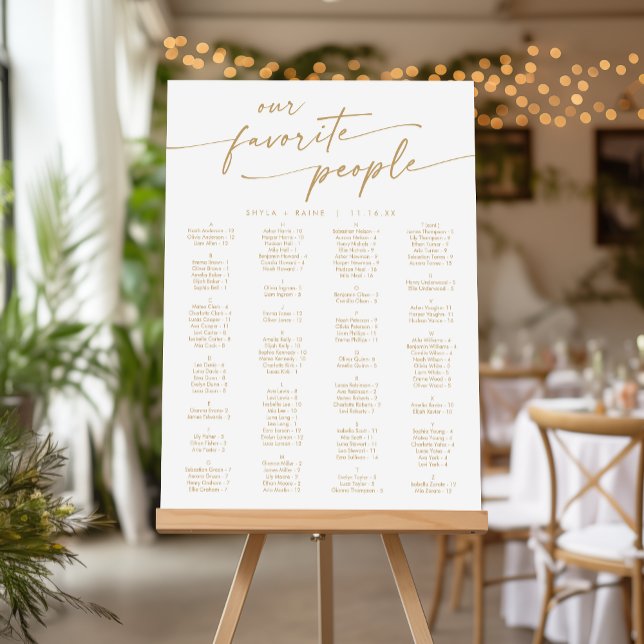 our
favorite
people
SHYLA + RAINE | 11.16.XX
A
Noah Anderson - 12
Olivia Anderson - 12
Liam Allen - 12
B
Emma Brown - 1
Oliver Brown - 1
Amelia Baker - 1
Elijah Baker - 1
Sophia Bell - 1
C
Mateo Clark - 5
Charlotte Clark - 5
Lucas Cooper - 11
Ava Cooper - 11
Levi Carter - 8
Isabella Carter - 8
Mia Cook - 8
D
Leo Davis - 8
Luna Davis - 8
Ezra Dunn - 8
Evelyn Dunn - 8
Gianna Evans - 2
James Edwards - 2
F
Lily Foster - 3
Oliver Fisher - 1
G
Sebastian Green - 7
Aurora Green - 7
Henry Graham - 7
Ellie Graham - 7
H
Asher Harris - 10
Harper Harris - 10
Hudson Hall - 1
Mila Hall - 1
Benjamin Howard - 4
Camila Howard - 4
Noah Howard - 7
I
Olivia Ingram - 2
Liam Ingram - 2
J
Emma Jones - 12
Oliver Jones - 12
K
Amelia Kelly - 10
Elijah Kelly - 10
Sophia Kennedy - 10
Mateo Kennedy - 10
Charlotte Kirk - 1
Lucas Kirk - 1
L
Ava Lewis - 1
Levi Lewis - 1
Isabella Lee - 10
Mia Lee - 10
Leo Long - 1
Luna Long - 1
Ezra Larson - 12
Evelyn Larson - 12
Luca Larson - 12
M
Gianna Miller - 2
James Miller - 2
Lily Moore - 2
Ethan Moore - 2
Aria Martin - 12
N
Sebastian Nelson - 4
Aurora Nelson - 4
Henry Nichols - 9
Ellie Nichols - 9
Asher Newman - 9
Harper Newman - 9
Hudson Neal - 16
Mila Neal - 16
O
Benjamin Oliver - 5
Camilla Olson - 5
P
Noah Peterson - 5
Olivia Peterson - 5
Liam Phillips - 5
Emma Phillips - 5
Oliver Quinn - 5
Amelia Quinn - 5
R
Lucas Robinson - 2
Ava Robinson - 2
Mateo Roberts - 2
Charlotte Roberts - 2
Levi Roberts - 2
S
Isabella Scott - 11
Mia Scott - 11
Leo Stewart - 11
Ezra Sullivan - 14
T
Evelyn Taylor - 5
Luca Taylor - 5
Gianna Thompson - 5
T (con't)
James Thompson - 5
Lily Thompson - 5
Ethan Turner - 5
Aria Turner - 5
Sebastian Torres - 5
Aurora Torres - 15
U
Henry Underwood - 5
Ellie Underwood - 5
V
Asher Vaughn - 11
Harper Vaughn - 11
Hudson Vance - 14
W
Mila Williams - 4
Benjamin Williams - 4
Camila Wilson - 4
Noah Wilson - 4
Olivia White - 5
Liam White - 5
Emma Wood - 8
Oliver Wood - 8
X
Amelia Xavier - 10
Elijah Xavier - 10
Y
Sophia Young - 4
Mateo Young - 4
Charlotte Yates - 4
Lucas Yates - 4
Ava York - 4
Levi York - 4
Z
Isabella Zarate - 12
Mia Zarate - 12